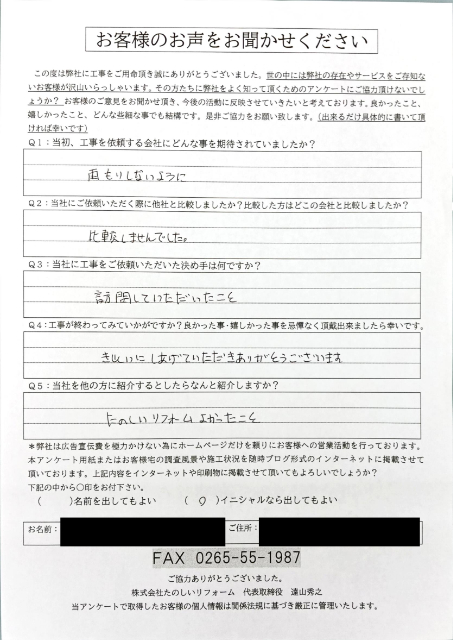 お客様のお声をお聞かせください
この度は弊社に工事をご用命頂き誠にありがとうございました。世の中には弊社の存在やサービスをご存知な
いお客様が沢山いらっしゃいます。その方たちに弊社をよく知って頂くためのアンケートにご協力頂けないでし
ょうか？お客様のご意見をお聞かせ頂き、今後の活動に反映させていきたいと考えております。良かったこと、
嬉しかったこと、どんな些細な事でも結構です。是非ご協力をお願い致します。（出来るだけ具体的に書いて頂
ければ幸いです）
Q1：当初、工事を依頼する会社にどんな事を期待されていましたか？
雨もりしないように
Q2：当社にご依頼いただく際に他社と比較しましたか？比較した方はどこの会社と比較しましたか？
比較しませんでした。
Q3：当社に工事をご依頼いただいた決め手は何ですか？
訪問していただいたこと
Q4：工事が終わってみていかがですか？良かった事・嬉しかった事を忌憚なく頂戴出来ましたら幸いです。
きれいにしあげていただきありがとうございます
Q5：当社を他の方に紹介するとしたらなんと紹介しますか？
たのしいリフォームよかったこと
＊弊社は広告宣伝費を極力かけない為にホームページだけを頼りにお客様への営業活動を行っております。
本アンケート用紙またはお客様宅の調査風景や施工状況を随時ブログ形式のインターネットに掲載させて
頂いております。上記内容をインターネットや印刷物に掲載させて頂いてもよろしいでしょうか？
下記の中から〇印をお付下さい。
（　　）名前を出してもよい　　（ ○ ）イニシャルなら出してもよい
お名前：　　ご住所：
FAX 0265-55-1987
ご協力ありがとうございました。
株式会社たのしいリフォーム　代表取締役　遠山秀之
当アンケートで取得したお客様の個人情報は関係法規に基づき厳正に管理いたします。